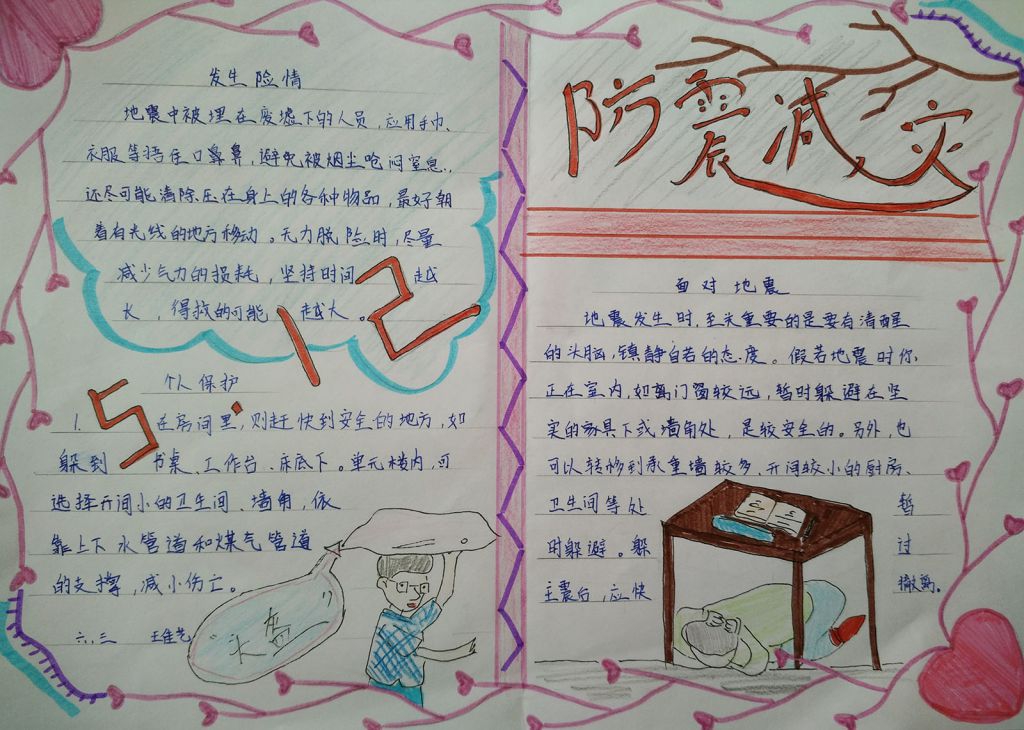 发生险情
地震中被埋在废墟下的人员，应用手巾、
衣服等捂住口鼻鼻，避免被烟尘呛闷窒息.,
还尽可能清除压在身上的各种物品，最好朝
着有光线的地方移动。无力脱险时，尽量
减少气力的损耗，坚持时间越
长，得救的可能越大。
5.12
个人保护
1. 在房间里，则赶快到安全的地方，如
躲到书桌、工作台、床底下。单元楼内，可
选择开间小的卫生间、墙角，依
靠上下水管道和煤气管道
的支撑，减小伤亡。
六.三 王佳艺
"头盔"
防震减灾
面对地震
地震发生时，至关重要的是要有清醒
的头脑，镇静自若的态度。假若地震时你
正在室内，如离门窗较远，暂时躲避在坚
实的家具下或墙角处，是较安全的。另外，也
可以转移到承重墙较多、开间较小的厨房、
卫生间等处暂
时躲避。躲过
主震后，应快撤离。